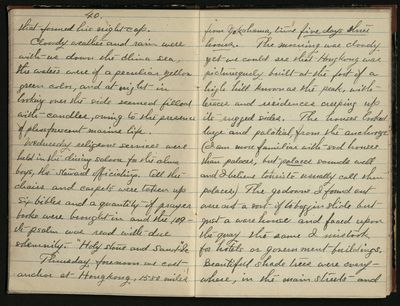 40.
that formed his night cap.
Cloudy weather and rain were
with us down the China sea,
the waters were of a peculiar yellow
green color, and at night in
looking over the side seemed filled
with candles, owing to the presence
of phosphorescent marine life.
Wednesday religious services were
held in the dining saloon for the alma
boys, the steward officiating. All the
chairs and carpets were taken up
six bibles and a quantity of prayer
books were brought in and the 109-
th psalm was read with due
solemnity. "Holy stone and
Thursday forenoon we cast
anchor at Hongkong, 1550 miles
from Yokohama, time five days three
hours. The morning was cloudy
yet we could see that Hongkong was
picturesquely built at the foot of a
high hill known as the peak, with
terraces and residences creeping up
its rugged sides. The houses looked
large and palatial from the anchorage
(I am more familiar with sod houses
than palaces, but palace sounds well
and I believe tourists usually call them
palaces) The godowns I found out
were not a sort of toboggan slide but
just a ware house and faced upon
the quay the same I mistook
for hotels or government buildings.
Beautiful shade trees were every-
where, in the main streets and